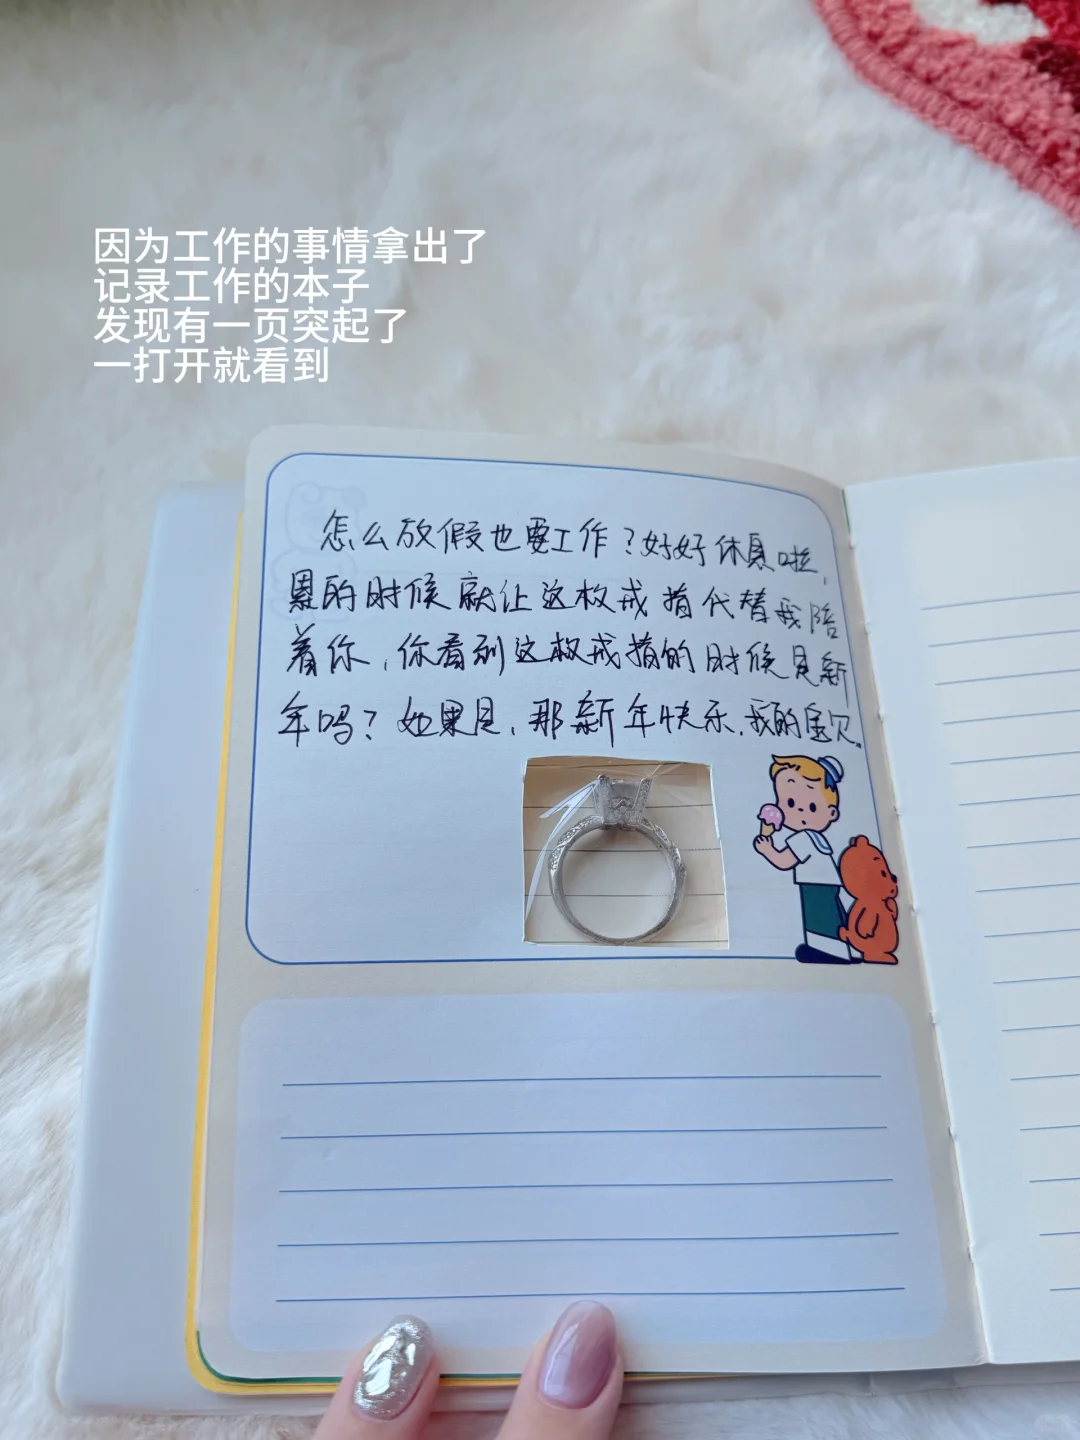 因为工作的事情拿出了
记录工作的本子
发现有一页突起了
一打开就看到
怎么放假也要工作？好好休息啦，
累的时候就让这枚戒指代替我陪
着你，你看到这枚戒指的时候是新
年吗？如果是，那新年快乐，我的宝贝。